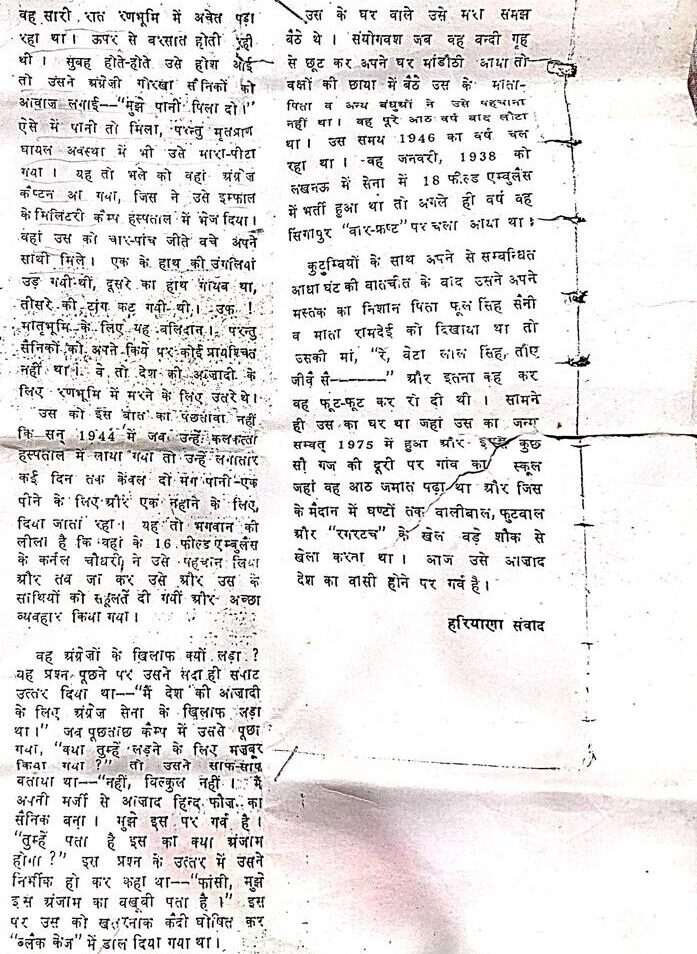 वह सारी रात रणभूमि में अचेत पड़ा
रहा था। ऊपर से बरसात होती रही
थी। सुबह होते-होते उसे होश आई
तो उसने अंग्रेजी गोरखा सैनिकों को
आवाज लगाई—"मुझे पानी पिला दो।"
ऐसे में पानी तो मिला, परन्तु मृतप्राण
घायल अवस्था में भी उसे मारा-पीटा
गया। यह तो भले को वहां अंग्रेज
कैप्टन आ गया, जिस ने उसे इम्फाल
के मिलिटरी कैम्प हस्पताल में भेज दिया।
वहां उस को चार-पांच जीते बचे अपने
साथी मिले। एक के हाथ की उंगलियां
उड़ गयी थीं, दूसरे का हाथ गायब था,
तीसरे की टांग कट गयी थी। उफ !
मातृभूमि के लिए यह बलिदान। परन्तु
सैनिकों को अपने किये पर कोई प्रायश्चित
नहीं था। वे तो देश की आजादी के
लिए रणभूमि में मरने के लिए उतरे थे।
उस को इस बात का पछतावा नहीं
कि सन् 1944 में जब उन्हें कलकत्ता
हस्पताल में लाया गया तो उन्हें लगातार
कई दिन तक केवल दो मग पानी-एक
पीने के लिए और एक नहाने के लिए,
दिया जाता रहा। यह तो भगवान की
लीला है कि वहां के 16 फील्ड एम्बुलैंस
के कर्नल चौधरी ने उसे पहचान लिया
और तब जा कर उसे और उस के
साथियों को सहूलतें दी गयीं और अच्छा
व्यवहार किया गया।
वह अंग्रेजों के खिलाफ क्यों लड़ा ?
यह प्रश्न पूछने पर उसने सदा ही सपाट
उत्तर दिया था—"मैं देश की आजादी
के लिए अंग्रेज सेना के खिलाफ लड़ा
था।" जब पूछताछ कैम्प में उससे पूछा
गया, "क्या तुम्हें लड़ने के लिए मजबूर
किया गया ?" तो उसने साफ-साफ
बताया था—"नहीं, बिल्कुल नहीं। मैं
अपनी मर्जी से आजाद हिन्द फौज का
सैनिक बना। मुझे इस पर गर्व है।
"तुम्हें पता है इस का क्या अंजाम
होगा ?" इस प्रश्न के उत्तर में उसने
निर्भीक हो कर कहा था—"फांसी, मुझे
इस अंजाम का बखूबी पता है।" इस
पर उस को खतरनाक कैदी घोषित कर
"ब्लैक केज" में डाल दिया गया था।
उस के घर वाले उसे मरा समझ
बैठे थे। संयोगवश जब वह बन्दी गृह
से छूट कर अपने घर मांडोठी आया तो
वृक्षों की छाया में बैठे उस के माता-
पिता व अन्य बंधुओं ने उसे पहचाना
नहीं था। वह पूरे आठ वर्ष बाद लौटा
था। उस समय 1946 का वर्ष चल
रहा था। वह जनवरी, 1938 को
लखनऊ में सेना में 18 फील्ड एम्बुलैंस
में भर्ती हुआ था तो अगले ही वर्ष वह
सिंगापुर "वार-फ्रण्ट" पर चला आया था।
कुटुम्बियों के साथ अपने से सम्बन्धित
आधा घंट की बातचीत के बाद उसने अपने
मस्तक का निशान पिता फूल सिंह सैनी
व माता रामदेई को दिखाया था तो
उसकी मां, "रे, बेटा लाल सिंह, तौए
जीवै सै———" और इतना कह कर
वह फूट-फूट कर रो दी थी। सामने
ही उस का घर था जहां उस का जन्म
सम्वत् 1975 में हुआ और इससे कुछ
सौ गज की दूरी पर गांव का स्कूल
जहां वह आठ जमात पढ़ा था और जिस
के मैदान में घण्टों तक वालीबाल, फुटबाल
और "रगरटच" के खेल बड़े शौक से
खेला करता था। आज उसे आजाद
देश का वासी होने पर गर्व है।
हरियाणा संवाद